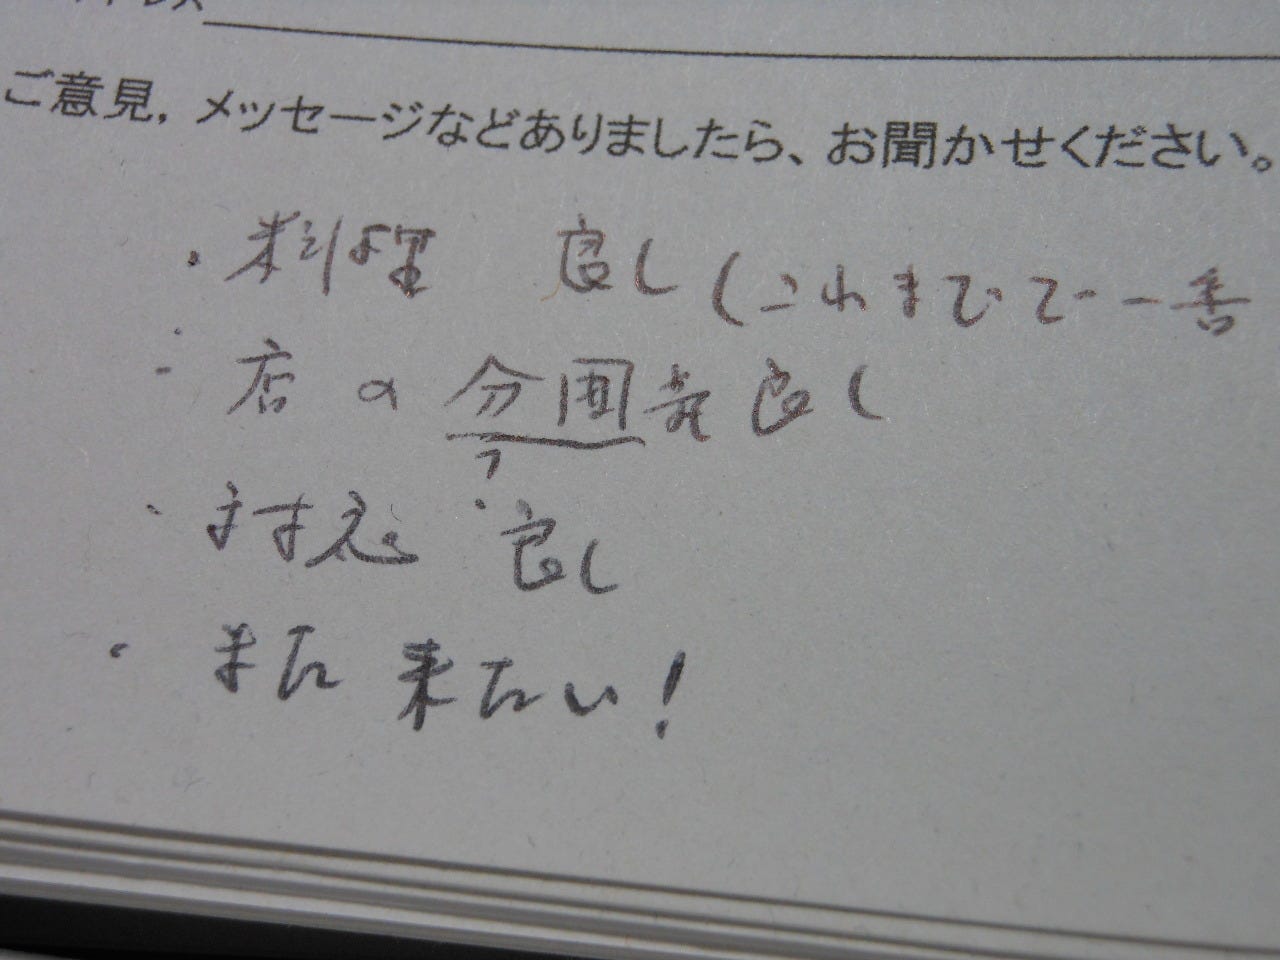 ご意見，メッセージなどありましたら、お聞かせください。
・料理 良し(これまでで一番
・店の分囲気良し
?
・対応 良し
・また 来たい!